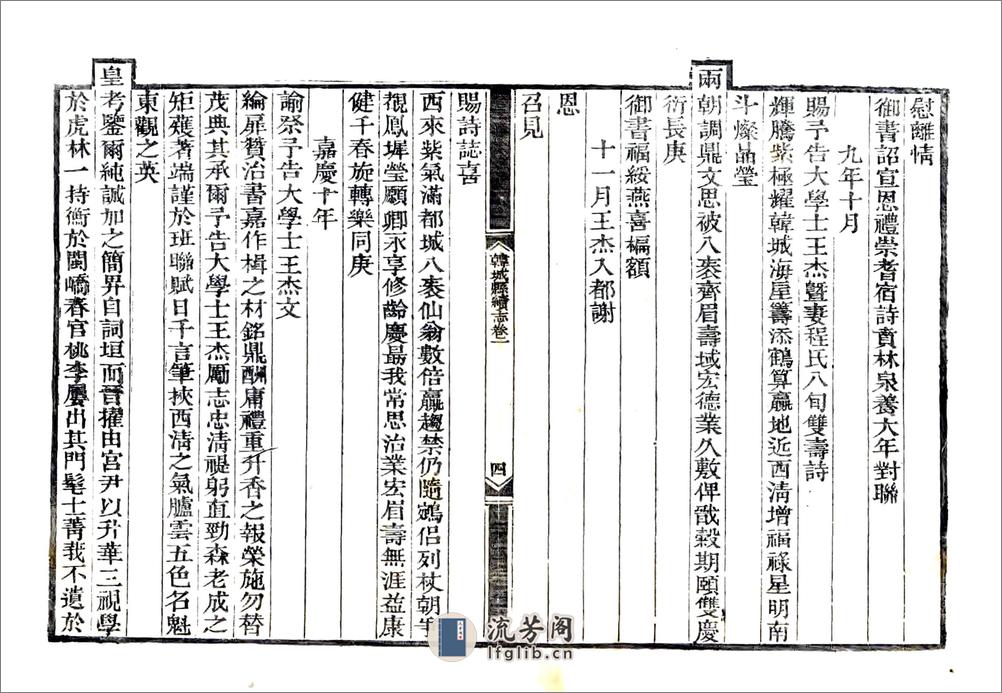 慰離情
御書詔宣恩禮崇耆宿詩賁林泉養大年對聯
九年十月
賜予告大學士王杰暨妻程氏八旬雙壽詩
輝騰紫極耀韓城海屋籌添鶴算贏地近西淸增福祿星明南
斗燦晶瑩
兩
朝調鼎文思被八袠齊眉壽域宏德業久敷俾戩穀期頤雙慶
衍長庚
御書福綏燕喜楄額
十一月王杰入都謝
恩
召見
韓城縣續志卷一
四
賜詩誌喜
西來紫氣滿都城八袠仙翁數倍贏趨禁仍隨鵷侶列杖朝
覩鳳墀瑩願卿永享修齡慶朂我常思治業宏眉壽無涯益康
健千春旋轉樂同庚
嘉慶十年
諭祭予告大學士王杰文
綸扉贊治書嘉作楫之材銘鼎酬庸禮重升香之報榮施勿替
茂典其承爾予告大學士王杰勵志忠淸禔躬直勁森老成之
矩矱著端謹於班聯賦日千言筆挾西淸之氣臚雲五色名魁
東觀之英
皇
考鑒爾純誠加之簡畀自詞垣而晉擢由宮尹以升華三視學
於虎林一持衡於閩嶠春官桃李屢出其門髦士菁莪不遺於
流芳阁
lfglib.cn